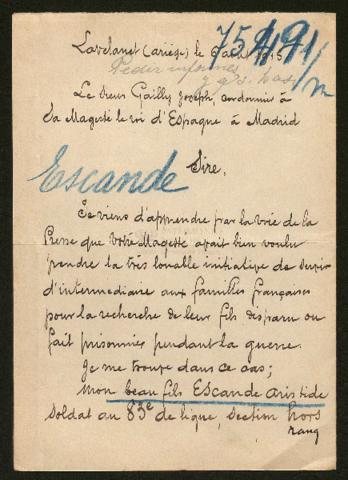 Lavelanet (ariège) le 6 août 1915
75491/2
Pedir informes
Le Sieur Gailly Joseph, cordonnier à
Sa Magesté le roi d'Espagne à Madrid
Sire,
Escande
Je viens d'apprendre par la voie de la
Presse que Votre Magesté avait bien voulu
prendre la très louable initiative de servir
d'intermediaire aux familles françaises
pour la recherche de leur fils disparu ou
fait prisonnier pendant la guerre.
Je me trouve dans ce cas;
Mon beau fils Escande aristide
Soldat au 83e de ligne, section hors
rang